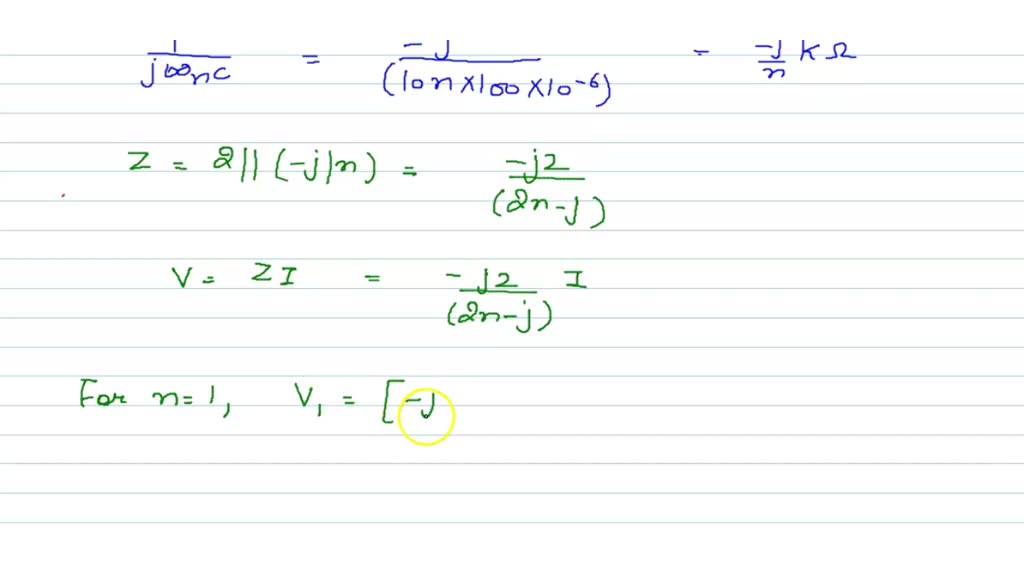 1/(jωnC) = -j/(10n×100×10⁻⁶) = -j/n KΩ
Z = 2||(-j|n) = -j2/(2n-j)
V = ZI = -j2/(2n-j) I
For n=1, V₁ = [-j